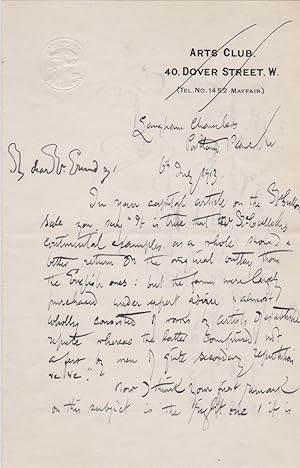 ARTS CLUB,
40, DOVER STREET, W.
(TEL. NO. 1452 MAYFAIR)
Langham Chambers
Portland Place W
6th July 1913
My dear Mr
In your capital article on the McCulloch
Sale you say "It is true that Mr McCulloch's
continental examples as a whole showed a
better return on the original outlay than
the English ones: but the former were largely
purchased under expert advice & almost
wholly consisted of works by artists of established
repute whereas the latter comprised not
a few by men of quite secondary reputation
&c &c."
Now I think your first remark
on this subject is the right one & it is